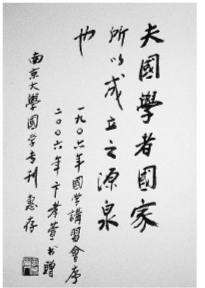 夫國學者國家
所以成立之源泉
也
一九〇六年國学講習會序
二〇〇六年卞孝萱书贈
南京大學國学专刊惠存